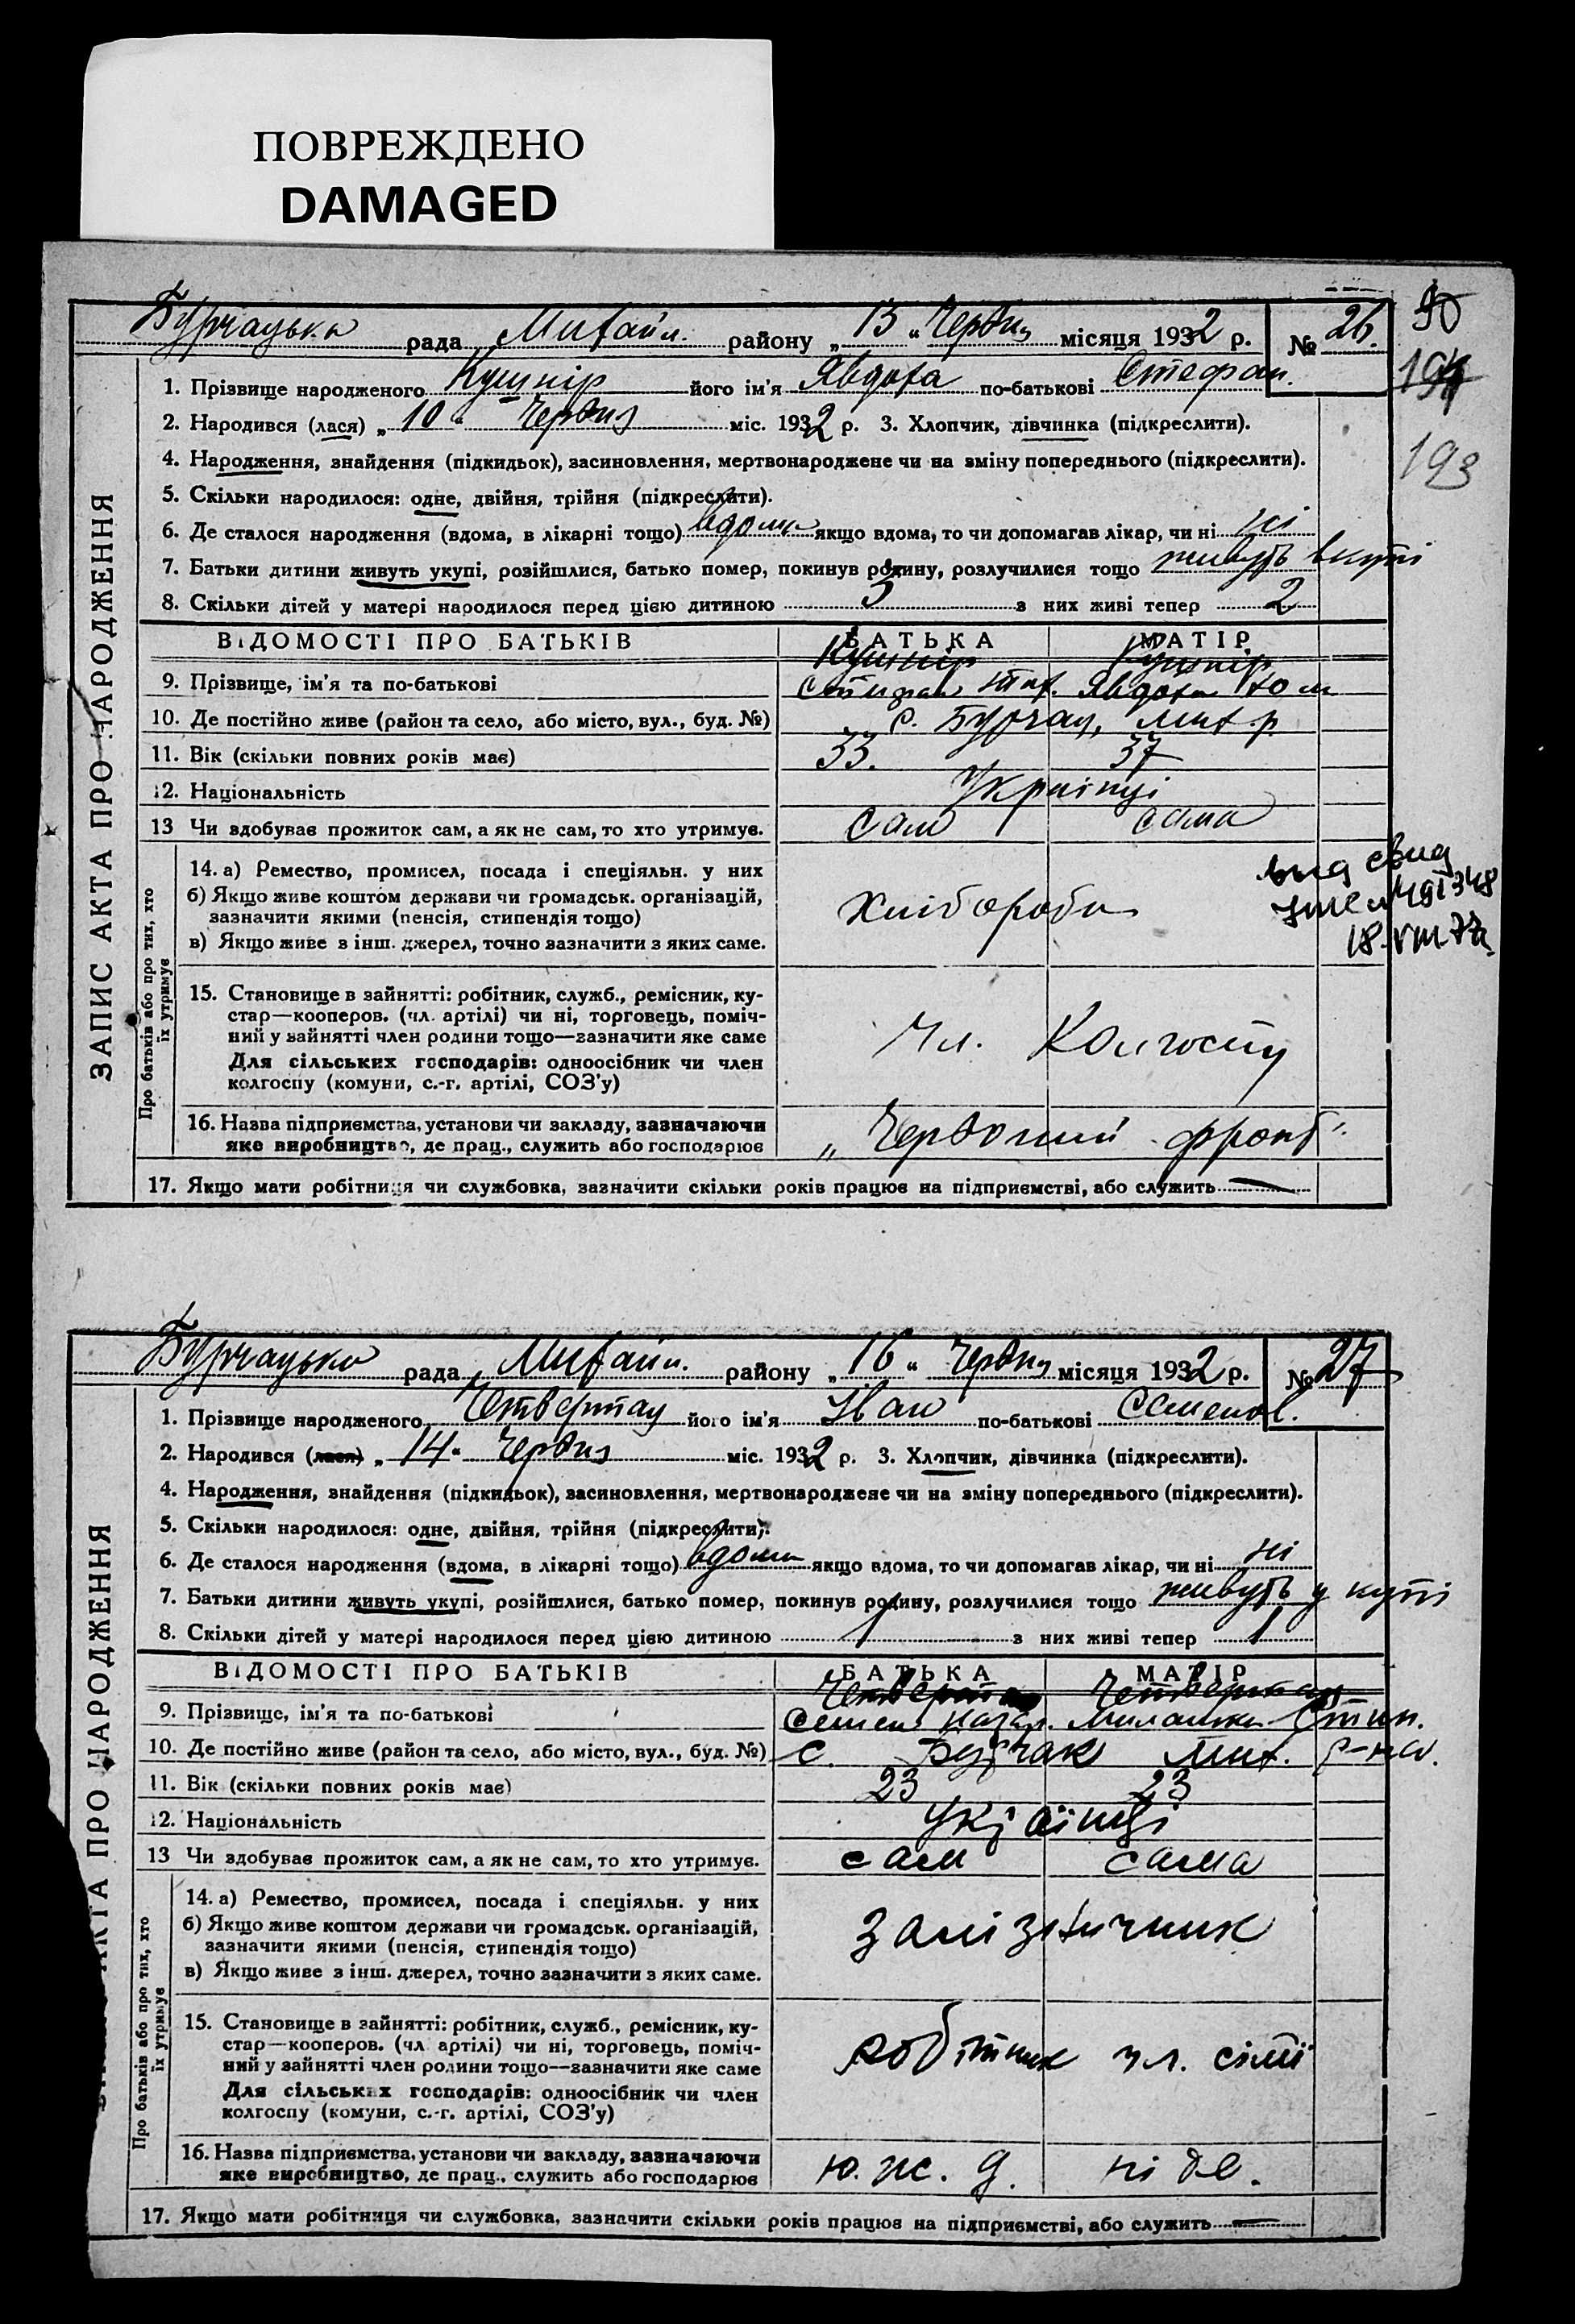 ПОВРЕЖДЕНО
DAMAGED
Бурчацька рада Михайл. району „13“ Червня місяця 1932 р. № 26.
90
194
193
1. Прізвище народженого Кушнір його ім'я Явдоха по-батькові Стефан.
2. Народився (лася) „10“ Червня міс. 1932 р. 3. Хлопчик, дівчинка (підкреслити).
4. Народження, знайдення (підкидьок), засиновлення, мертвонароджене чи на зміну попереднього (підкреслити).
5. Скільки народилося: одне, двійня, трійня (підкреслити).
6. Де сталося народження (вдома, в лікарні тощо) вдома якщо вдома, то чи допомагав лікар, чи ні ні
7. Батьки дитини живуть укупі, розійшлися, батько помер, покинув родину, розлучилися тощо живуть вкупі
8. Скільки дітей у матері народилося перед цією дитиною 3 з них живі тепер 2
ВІДОМОСТІ ПРО БАТЬКІВ БАТЬКА МАТІР
Кушнір Кушнір
9. Прізвище, ім'я та по-батькові Явдоха
10. Де постійно живе (район та село, або місто, вул., буд. №) с. Бурчак, Мих. р.
11. Вік (скільки повних років має) 33. 37
12. Національність Українці
13 Чи здобував прожиток сам, а як не сам, то хто утримує. Сам сама
14. а) Ремество, промисел, посада і спеціяльн. у них
б) Якщо живе коштом держави чи громадськ. організацій,
зазначити якими (пенсія, стипендія тощо)
в) Якщо живе з інш. джерел, точно зазначити з яких саме.
Хлібороби
выд свид
18-VIII-77г.
15. Становище в зайнятті: робітник, служб., ремісник, ку-
стар—кооперов. (чл. артілі) чи ні, торговець, поміч-
ний у зайнятті член родини тощо—зазначити яке саме
Для сільських господарів: одноосібник чи член
колгоспу (комуни, с.-г. артілі, СОЗ'у)
Чл. Колгоспу
16. Назва підприємства, установи чи закладу, зазначаючи
яке виробництво, де прац., служить або господарює
„Червоний фронт“
17. Якщо мати робітниця чи службовка, зазначити скільки років працює на підприємстві, або служить —
ЗАПИС АКТА ПРО НАРОДЖЕННЯ
Про батьків або про тих, хто
їх утримує
Бурчацька рада Михайл. району „16“ Червня місяця 1932 р. № 27
1. Прізвище народженого Четвертак його ім'я Іван по-батькові Семенов.
2. Народився (лася) „14“ Червня міс. 1932 р. 3. Хлопчик, дівчинка (підкреслити).
4. Народження, знайдення (підкидьок), засиновлення, мертвонароджене чи на зміну попереднього (підкреслити).
5. Скільки народилося: одне, двійня, трійня (підкреслити).
6. Де сталося народження (вдома, в лікарні тощо) вдома якщо вдома, то чи допомагав лікар, чи ні ні
7. Батьки дитини живуть укупі, розійшлися, батько помер, покинув родину, розлучилися тощо живуть у купі
8. Скільки дітей у матері народилося перед цією дитиною 1 з них живі тепер 1
ВІДОМОСТІ ПРО БАТЬКІВ БАТЬКА МАТІР
Четвертак Четвертак
9. Прізвище, ім'я та по-батькові Семен Назар. Миланка Степ.
10. Де постійно живе (район та село, або місто, вул., буд. №) с. Бурчак Мих. р-на.
11. Вік (скільки повних років має) 23 23
12. Національність Українці
13 Чи здобував прожиток сам, а як не сам, то хто утримує. сам сама
14. а) Ремество, промисел, посада і спеціяльн. у них
б) Якщо живе коштом держави чи громадськ. організацій,
зазначити якими (пенсія, стипендія тощо)
в) Якщо живе з інш. джерел, точно зазначити з яких саме.
Залізничник
15. Становище в зайнятті: робітник, служб., ремісник, ку-
стар—кооперов. (чл. артілі) чи ні, торговець, поміч-
ний у зайнятті член родини тощо—зазначити яке саме
Для сільських господарів: одноосібник чи член
колгоспу (комуни, с.-г. артілі, СОЗ'у)
робітник чл. сімї
16. Назва підприємства, установи чи закладу, зазначаючи
яке виробництво, де прац., служить або господарює
ніде.
17. Якщо мати робітниця чи службовка, зазначити скільки років працює на підприємстві, або служить —
АКТА ПРО НАРОДЖЕННЯ
Про батьків або про тих, хто
їх утримує